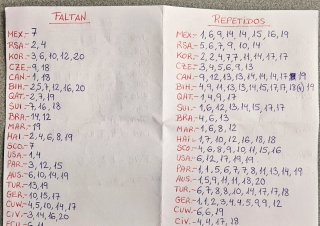 FALTAN
MEX.- 7
RSA.- 2, 4
KOR.- 3, 6, 10, 12, 20
CZE.- 9, 18
CAN.- 1, 18
BIH.- 2, 5, 7, 12, 16, 20
QAT.- 2, 7, 19
SUI.- 7, 16, 18
BRA.- 14, 12
MAR.- 19
HAI.- 2, 4, 6, 8, 19
SCO.- 7
USA.- 1, 4
PAR.- 3, 12, 15
AUS.- 6, 10, 14, 19
TUR.- 13, 19
GER.- 10, 15, 17
CUW.- 4, 5, 10, 14, 17
CIV.- 3, 14, 16, 20
REPETIDOS
MEX.- 1, 6, 9, 14, 14, 15, 16, 19
RSA.- 5, 6, 7, 9, 10, 14
KOR.- 2, 2, 4, 7, 7, 11, 14, 17, 17
CZE.- 3, 4, 5, 6, 9, 13
CAN.- 9, 12, 13, 13, 14, 14, 14, 17, 19
BIH.- 4, 9, 11, 13, 13, 14, 15, 17, 17, 18, 19
QAT.- 1, 4, 9, 17
SUI.- 1, 6, 12, 13, 14, 15, 17, 17
BRA.- 4, 6, 13
MAR.- 1, 6, 8, 12
HAI.- 1, 7, 10, 12, 16, 18, 18
SCO.- 4, 6, 8, 9, 10, 11, 15, 16
USA.- 6, 12, 17, 19, 19
PAR.- 1, 1, 5, 6, 7, 7, 8, 11, 13, 14, 19
AUS.- 1, 5, 9, 11, 11, 18, 20
TUR.- 6, 7, 8, 8, 10, 14, 17, 17, 18
GER.- 1, 1, 2, 3, 4, 4, 5, 9, 9, 12
CUW.- 6, 6, 19
CIV.- 4, 4, 17, 18